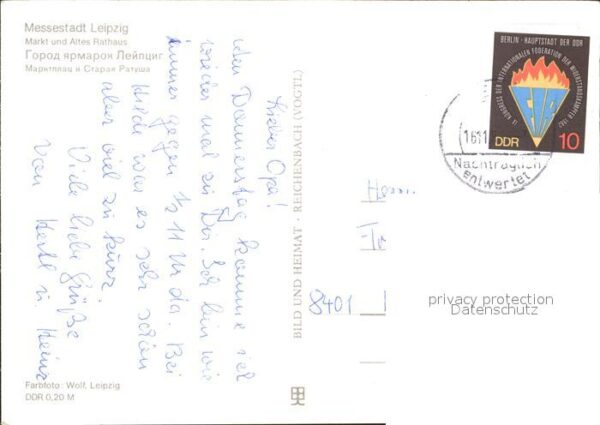 Messestadt Leipzig
Markt und Altes Rathaus
Город ярмарок Лейпциг
Марктплац и Старая Ратуша
Lieber Opa!
den Donnerstag komme ich
wieder mal zu Dir. Ich bin wie
immer gegen ½ 11 Uhr da. Bei
Hilde war es sehr schön
aber viel zu kurz.
Viele liebe Grüße
von Hertl u. Heinz
Farbfoto: Wolf, Leipzig
DDR 0,20 M
BILD UND HEIMAT · REICHENBACH (VOGTL)
BERLIN · HAUPTSTADT DER DDR
IX. KONGRESS DER INTERNATIONALEN FÖDERATION DER WIDERSTANDSKÄMPFER 1982
FIR
DDR 10
Nachträglich
entwertet
8401
privacy protection
Datenschutz